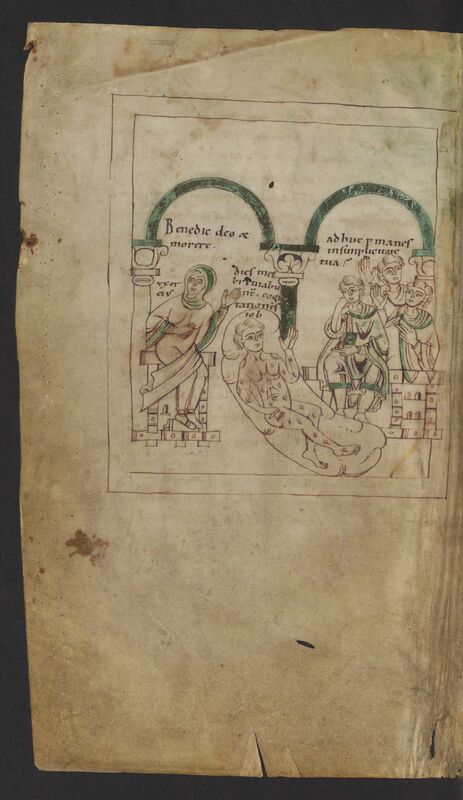 Benedic deo &
morere.
adhuc pmanes
insimplicitate
tua.
uxor
eius
dies mei
transibunt. cogi
tationes
iob